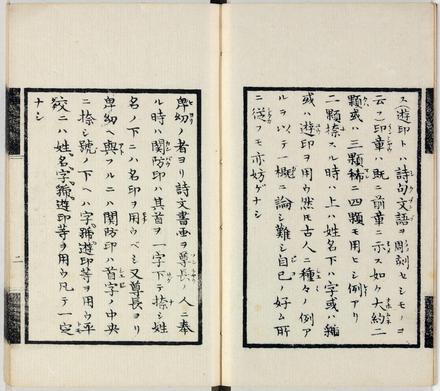 ス(遊印トハ詩句文語ヲ彫刻セシモノヲ
云フ)印章ハ既ニ前軍ニ示ス如ク大約二
顆或ハ三顆稀ニ四顆モ用ヒシ例アリ
二顆捺スル時ハ上ハ姓名下ハ字或ハ號
或ハ遊印ヲ用ウ然モ古人ニ種々ノ例ア
ルヲ以テ一概ニ論シ難シ自己ノ好ム所
ニ従フモ亦妨ゲナシ
卑幼ノ者ヨリ詩文書画ヲ尊長ノ人ニ奉
ル時ハ関防印ハ其首ヲ一字下テ捺シ姓
名ノ下ニハ名印ヲ用ウベシ又尊長ヨリ
卑幼ヘ與フルニハ関防印ハ首字ノ中央
ニ捺シ號ノ下ヘハ字號遊印等ヲ用ウ平
交ニハ姓名字號遊印等ヲ用ウ凡テ一定
ナシ
二